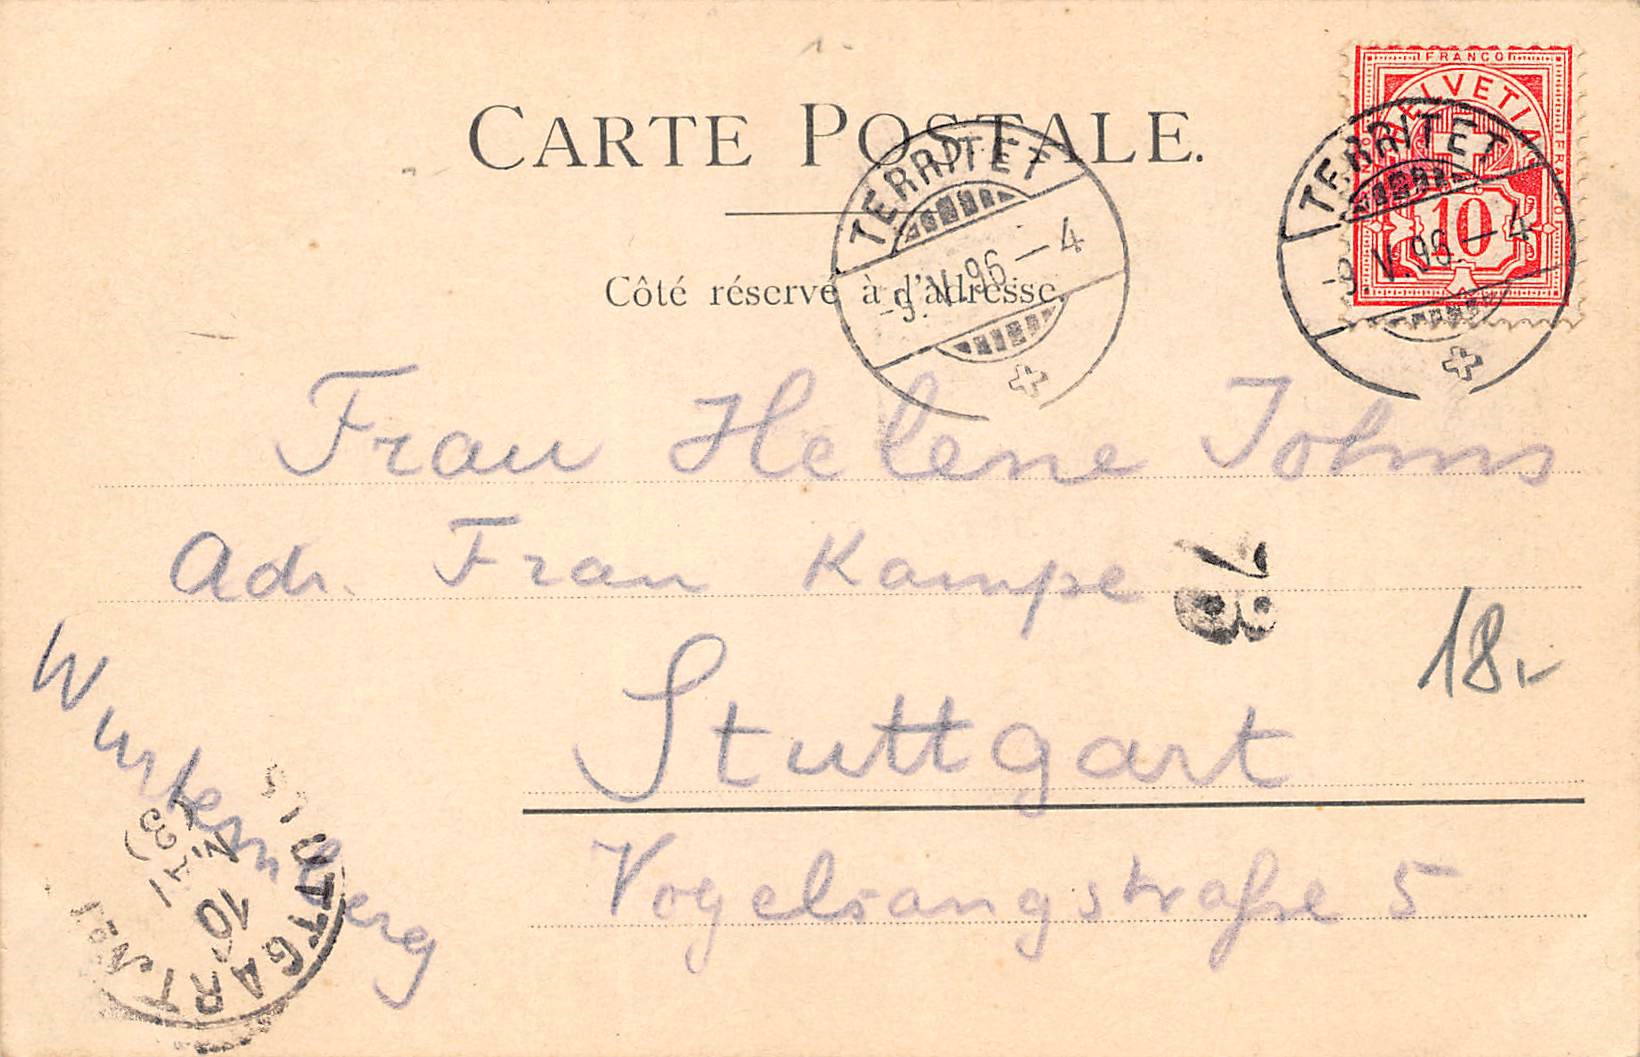 CARTE POSTALE.
FRANCO
HELVETIA
10
TERRITET
-9.V.96.-4
TERRITET
-9.V.96.-4
Côté réservé à d'adresse.
Frau Helene Johns
Adr. Frau Kampe
73
18.-
Stuttgart
Württemberg
Vogelsangstraße 5
STUTTGART No 1
10
MAI